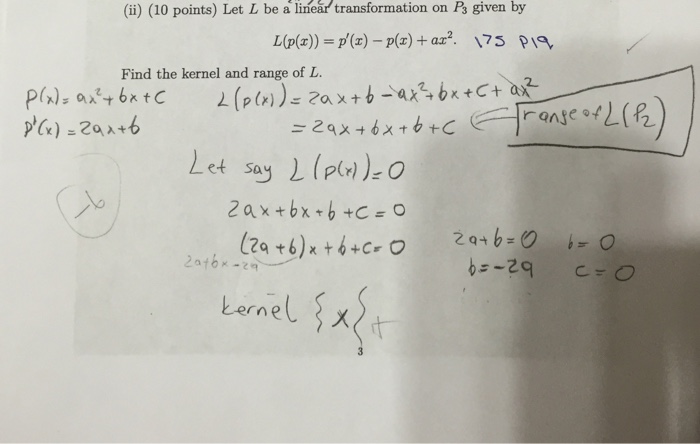 (ii) (10 points) Let L be a linear transformation on P₃ given by
L(p(x)) = p'(x) − p(x) + ax². 175 P19
Find the kernel and range of L.
P(x) = ax² + bx + c L(p(x)) = 2ax + b - ax² + bx + c + ax²
P'(x) = 2ax + b = 2ax + bx + b + c ⇐ range of L(P₂)
Let say L(p(x)) = 0
2ax + bx + b + c = 0
(2a + b)x + b + c = 0 2a + b = 0 b = 0
2a+bx-2a b = -2a c = 0
kernel {x}
3